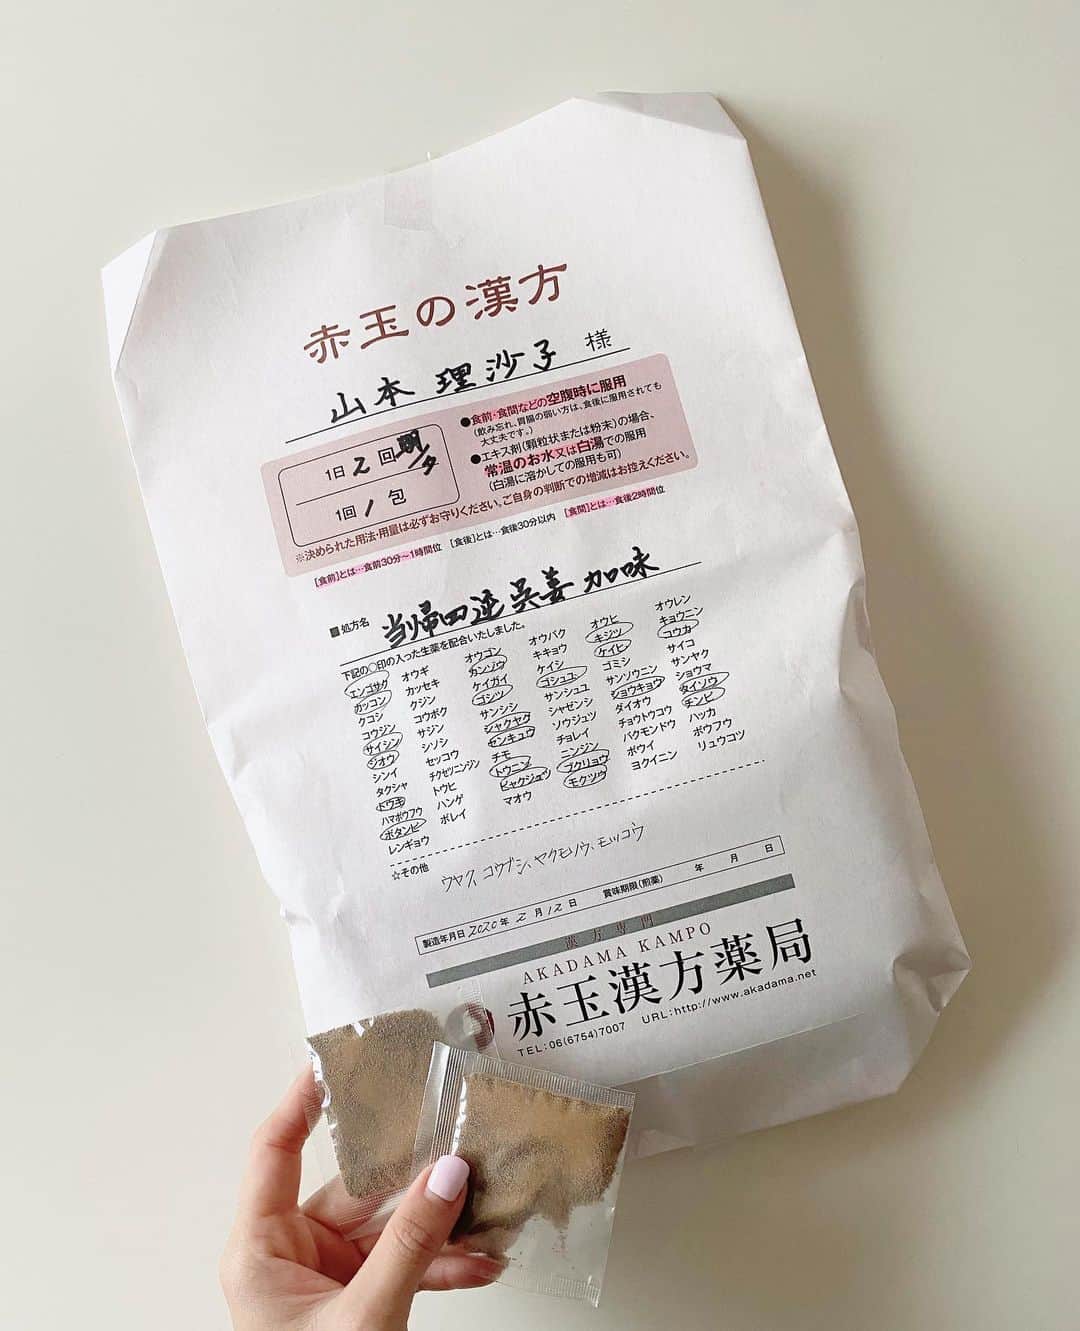 赤玉の漢方
山本 理沙子 様
1日 2 回 朝夕
1回 1 包
●食前・食間などの空腹時に服用
(飲み忘れ、胃腸の弱い方は、食後に服用されても
大丈夫です。)
●エキス剤(顆粒状または粉末)の場合、
常温のお水又は白湯での服用
(白湯に溶かしての服用も可)
※決められた用法・用量は必ずお守りください。ご自身の判断での増減はお控えください。
[食前]とは…食前30分〜1時間位 [食後]とは…食後30分以内 [食間]とは…食後2時間位
■処方名 当帰四逆呉姜加味
下記の○印の入った生薬を配合いたしました。
エンゴサク オウギ オウゴン オウバク オウヒ オウレン
カッコン カッセキ カンゾウ キキョウ キジツ キョウニン
クコシ クジン ケイガイ ケイシ ケイヒ コウカ
コウジン コウボク ゴシツ ゴシュユ ゴミシ サイコ
サイシン サジン サンシシ サンシュユ サンソウニン サンヤク
ジオウ シソシ シャクヤク シャゼンシ ショウキョウ ショウマ
シンイ セッコウ センキュウ ソウジュツ ダイオウ タイソウ
タクシャ チクセツニンジン チモ チョレイ チョウトウコウ チンピ
トウキ トウヒ トウニン ニンジン バクモンドウ ハッカ
ハマボウフウ ハンゲ ビャクジュツ ブクリョウ ボウイ ボウフウ
ボタンピ ボレイ マオウ モクツウ ヨクイニン リュウコツ
レンギョウ
☆その他 ウヤク、コウブシ、ヤクモソウ、モッコウ
製造年月日 2020 年 2 月 12 日 賞味期限(煎薬) 年 月 日
漢方専門
AKADAMA KAMPO
赤玉漢方薬局
TEL:06(6754)7007 URL:http://www.akadama.net